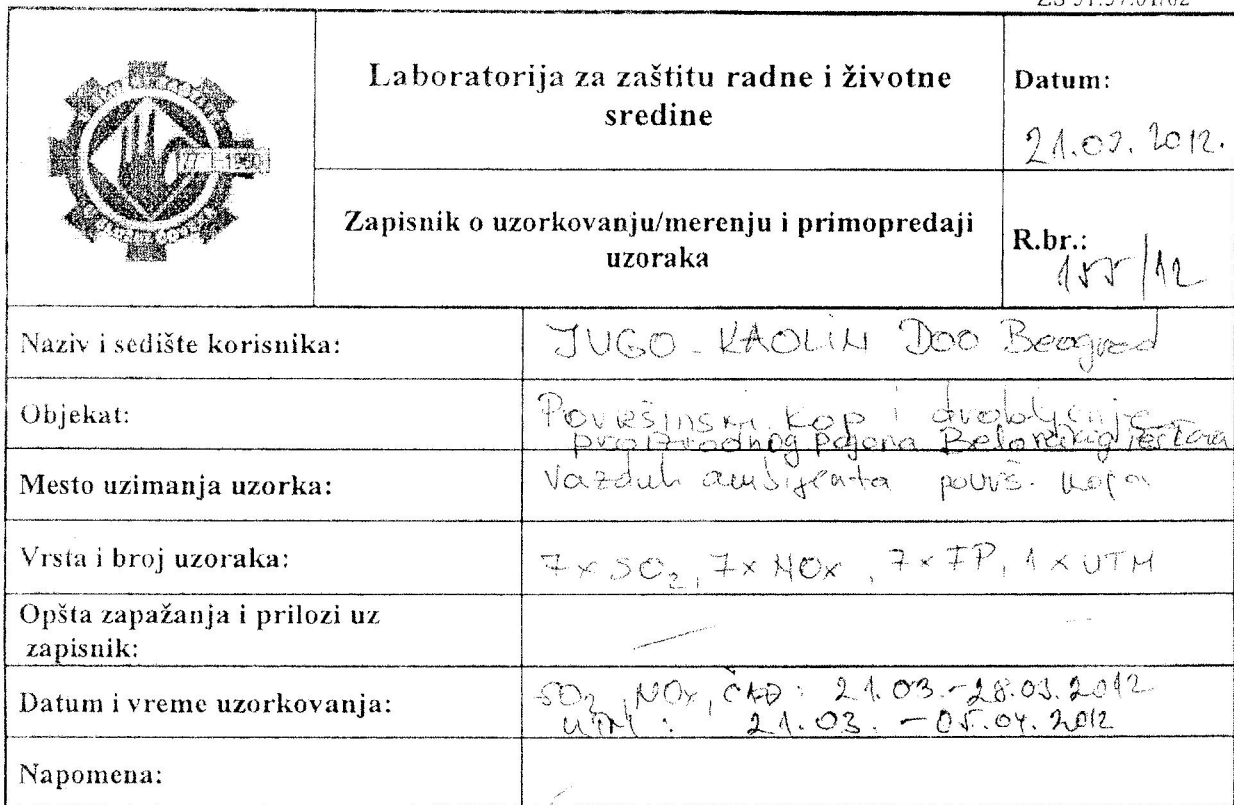 Laboratorija za zaštitu radne i životne
sredine
Datum:
21.03.2012.
Zapisnik o uzorkovanju/merenju i primopredaji
uzoraka
R.br.:
155/12
Naziv i sedište korisnika:
JUGO-KAOLIN Doo Beograd
Objekat:
Površinski kop i drobljenje
proizvodnog pogona
Mesto uzimanja uzorka:
Vazduh ambijenta površ. kopa
Vrsta i broj uzoraka:
7x SO2, 7x NOx, 7x FP, 1x UTM
Opšta zapažanja i prilozi uz
zapisnik:
Datum i vreme uzorkovanja:
SO2, NOx, ČAĐ: 21.03.-28.03.2012
UTM: 21.03. - 05.04.2012
Napomena: